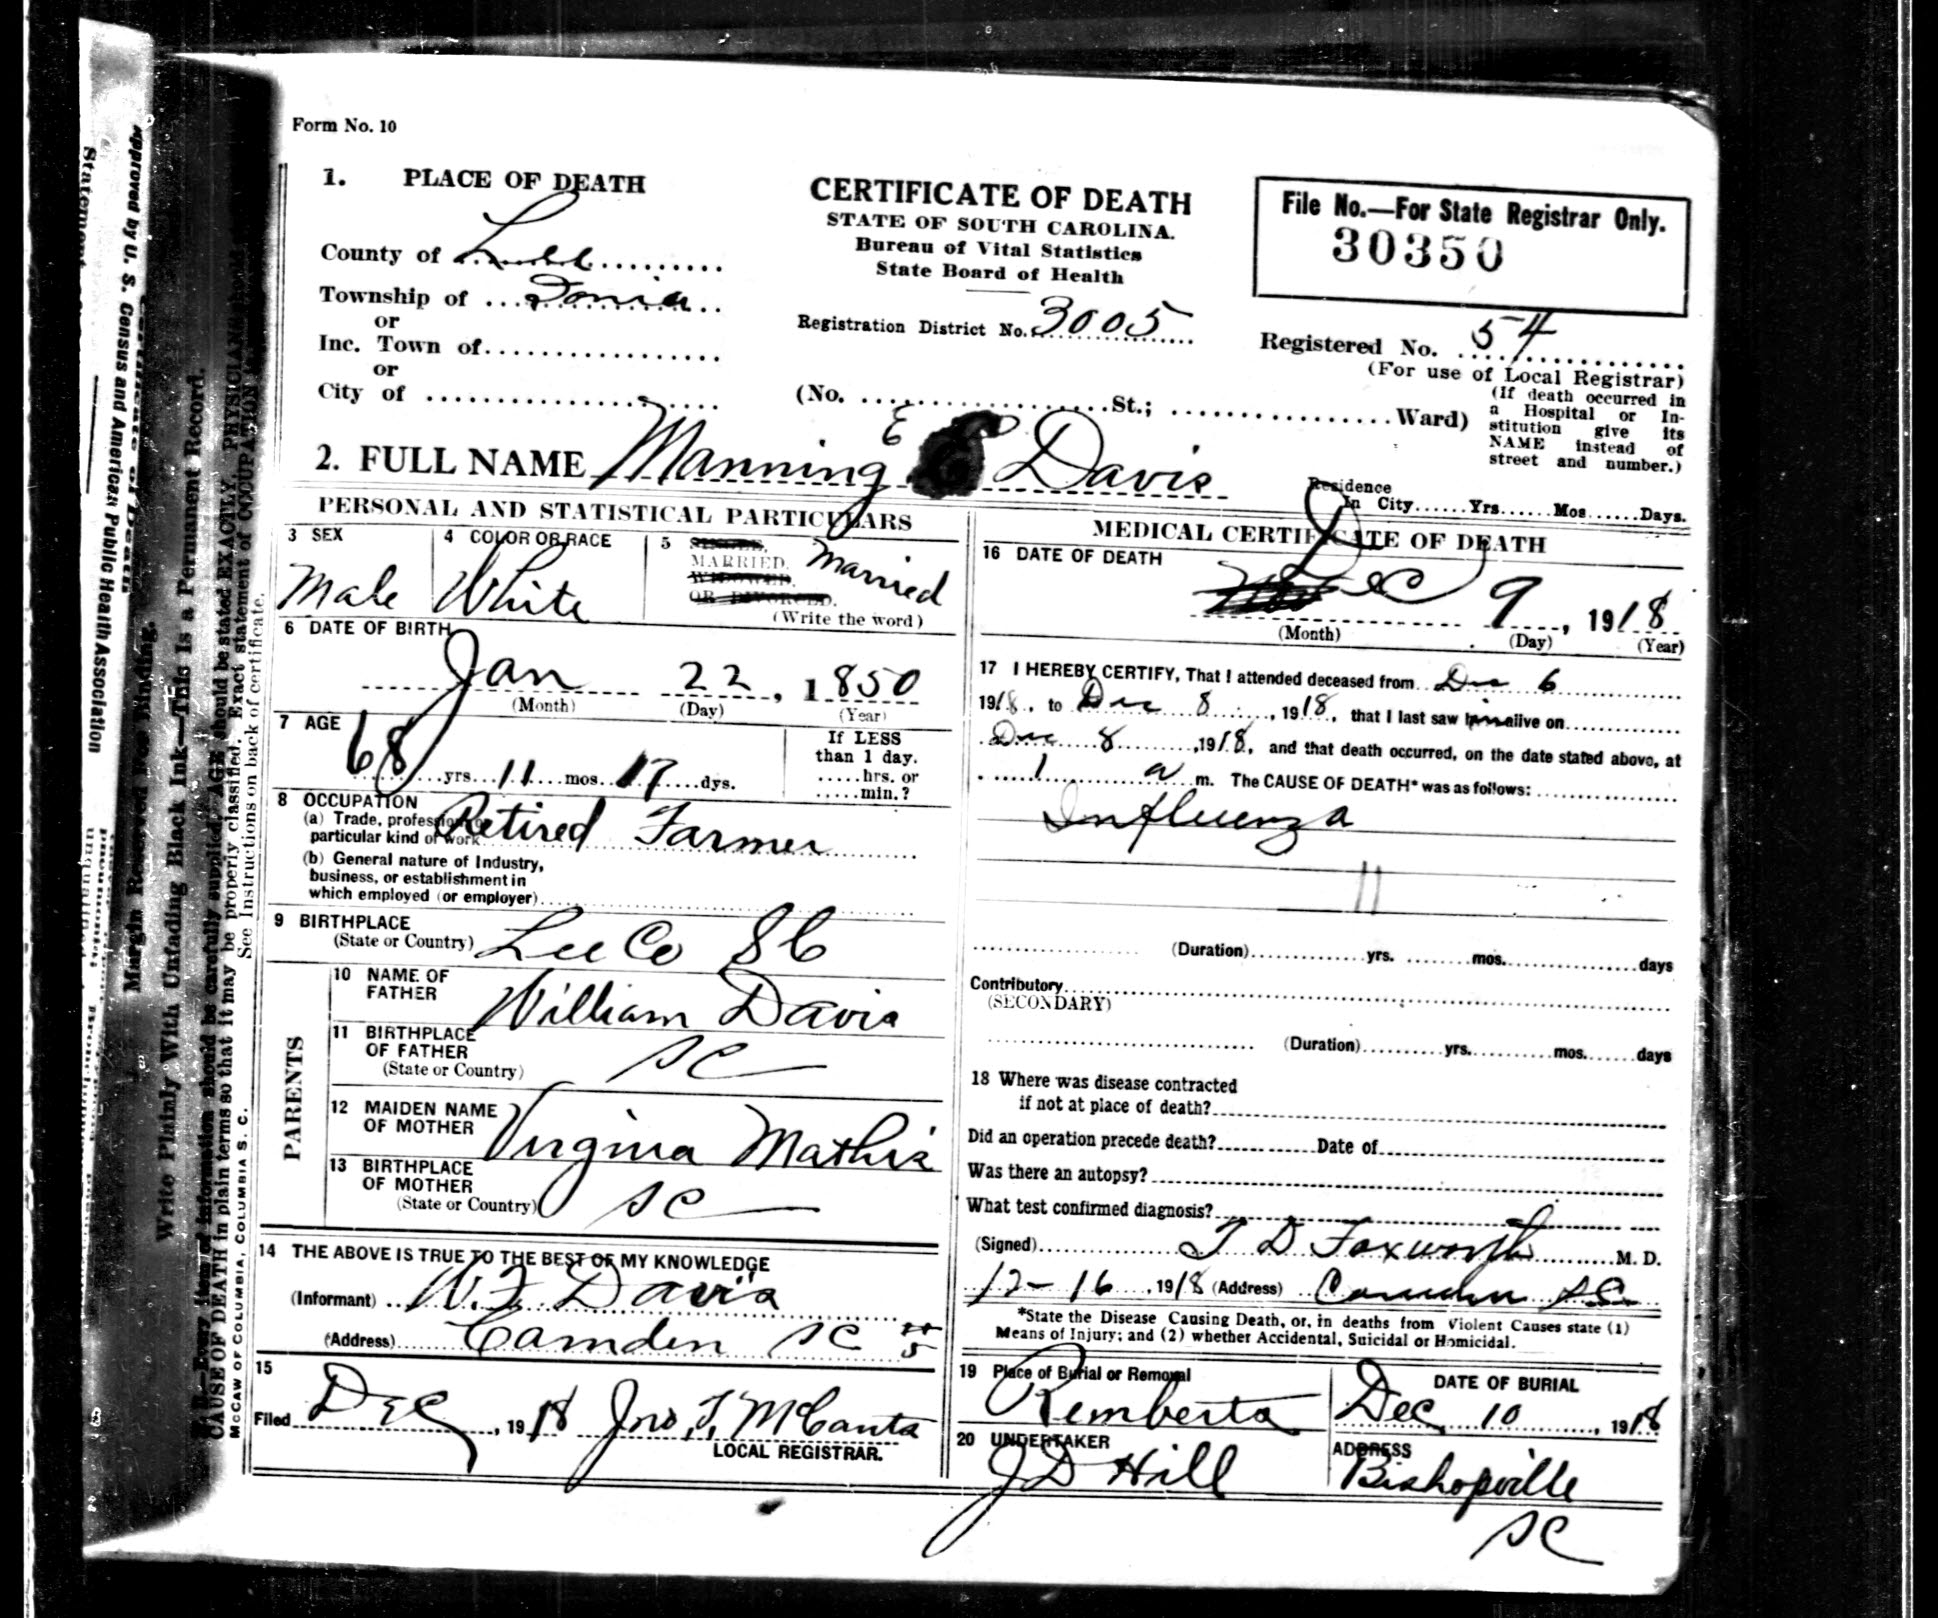 Form No. 10
1. PLACE OF DEATH
County of Lee
Township of Ionia
or
Inc. Town of
or
City of
CERTIFICATE OF DEATH
STATE OF SOUTH CAROLINA.
Bureau of Vital Statistics
State Board of Health
Registration District No. 3005
File No.—For State Registrar Only.
30350
Registered No. 54
(For use of Local Registrar)
(No. St.; Ward)
(If death occurred in
a Hospital or In-
stitution give its
NAME instead of
street and number.)
2. FULL NAME Manning E Davis
Residence
In City Yrs Mos Days.
PERSONAL AND STATISTICAL PARTICULARS
3 SEX
Male
4 COLOR OR RACE
White
5 SINGLE,
MARRIED,
WIDOWED,
OR DIVORCED.
Married
(Write the word)
6 DATE OF BIRTH
Jan 22, 1850
(Month) (Day) (Year)
7 AGE
68 yrs. 11 mos. 17 dys.
If LESS
than 1 day.
hrs. or
min.?
8 OCCUPATION
(a) Trade, profession or
particular kind of work Retired Farmer
(b) General nature of Industry,
business, or establishment in
which employed (or employer)
9 BIRTHPLACE
(State or Country) Lee Co SC
PARENTS
10 NAME OF
FATHER William Davis
11 BIRTHPLACE
OF FATHER
(State or Country) SC
12 MAIDEN NAME
OF MOTHER Virginia Mathis
13 BIRTHPLACE
OF MOTHER
(State or Country) SC
14 THE ABOVE IS TRUE TO THE BEST OF MY KNOWLEDGE
(Informant) W.F. Davis
(Address) Camden SC
15
Filed Dec, 1918 Jno. T. McCants
LOCAL REGISTRAR.
MEDICAL CERTIFICATE OF DEATH
16 DATE OF DEATH
Dec 9, 1918
(Month) (Day) (Year)
17 I HEREBY CERTIFY, That I attended deceased from Dec 6
1918, to Dec 8, 1918, that I last saw him alive on
Dec 8, 1918, and that death occurred, on the date stated above, at
1 a m. The CAUSE OF DEATH* was as follows:
Influenza
11
(Duration) yrs. mos. days
Contributory
(SECONDARY)
(Duration) yrs. mos. days
18 Where was disease contracted
if not at place of death?
Did an operation precede death? Date of
Was there an autopsy?
What test confirmed diagnosis?
(Signed) T D Foxworth M. D.
12-16, 1918 (Address) Camden SC
*State the Disease Causing Death, or, in deaths from Violent Causes state (1)
Means of Injury; and (2) whether Accidental, Suicidal or Homicidal.
19 Place of Burial or Removal
Remberta
DATE OF BURIAL
Dec 10, 1918
20 UNDERTAKER
J D Hill
ADDRESS
Bishopville
SC
Approved by U. S. Census and American Public Health Association
Margin Reserved for Binding.
Write Plainly With Unfading Black Ink—This is a Permanent Record.
N. B.—Every item of information should be carefully supplied. AGE should be stated EXACTLY. PHYSICIANS
CAUSE OF DEATH in plain terms so that it may be properly classified. Exact statement of OCCUPATION
See Instructions on back of certificate.
McCAW OF COLUMBIA, COLUMBIA S. C.